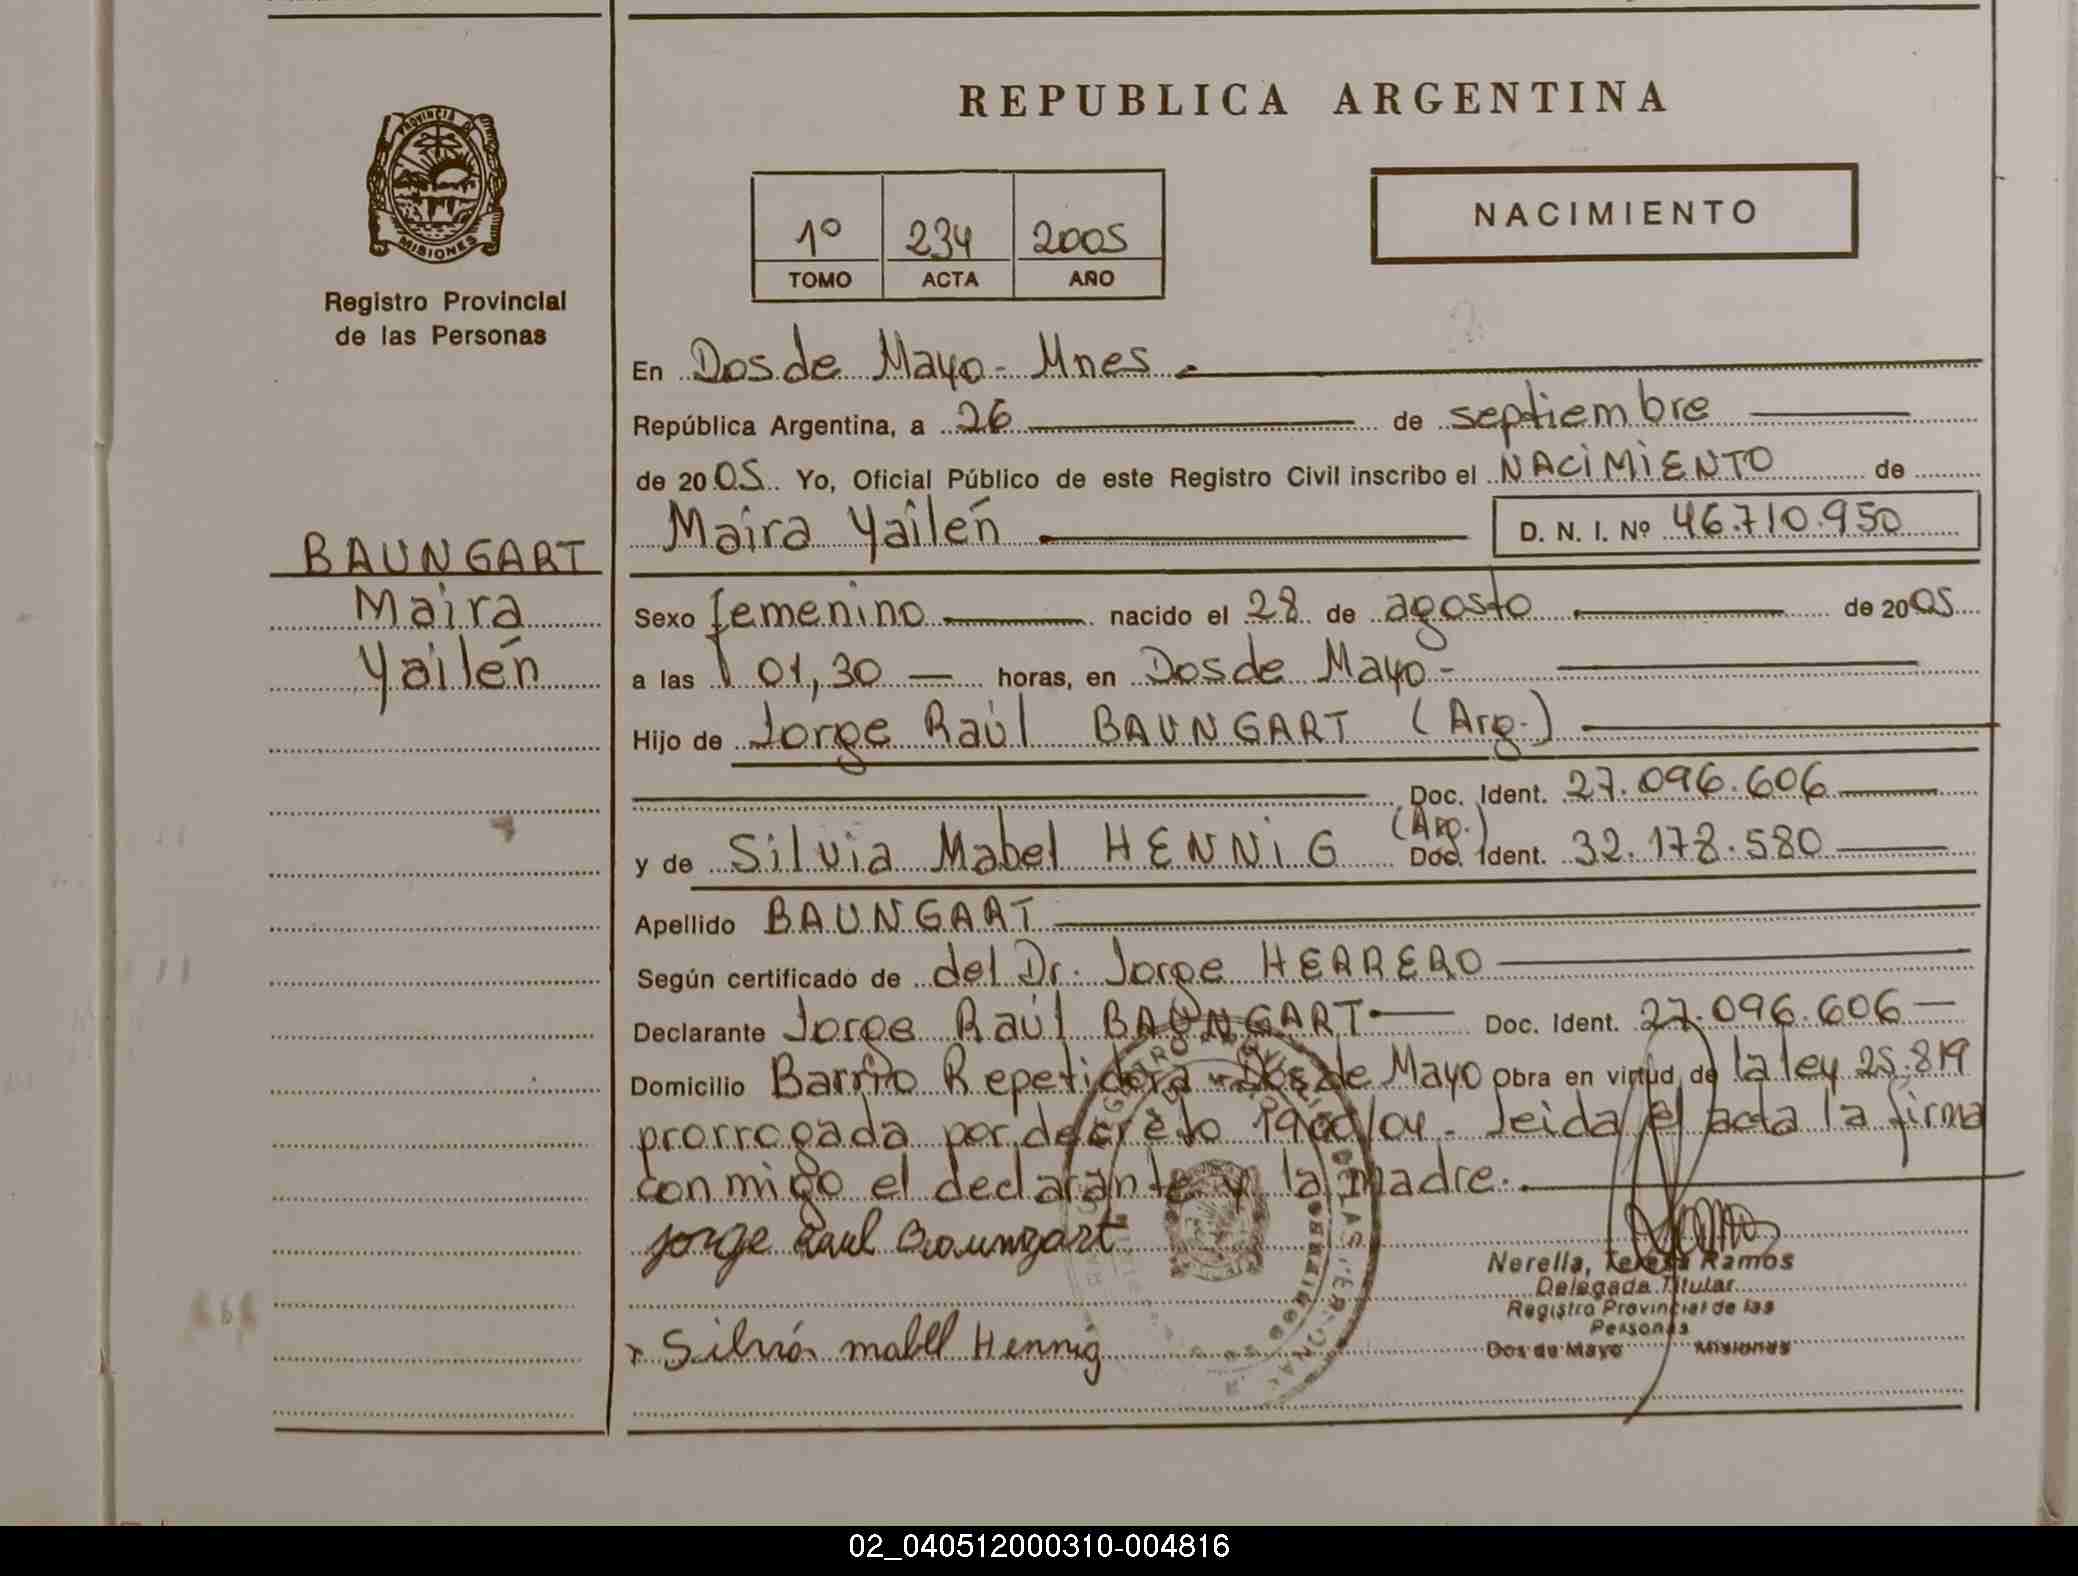 REPUBLICA ARGENTINA
PROVINCIA D
MISIONES
Registro Provincial
de las Personas
1º 234 2005
TOMO ACTA AÑO
NACIMIENTO
En Dos de Mayo - Mnes
República Argentina, a 26 de septiembre
de 2005 Yo, Oficial Público de este Registro Civil inscribo el NACIMIENTO de
Maira Yailén D. N. I. Nº 46.710.950
BAUNGART
Maira
Yailén
Sexo femenino nacido el 28 de agosto de 2005
a las 01,30 horas, en Dos de Mayo -
Hijo de Jorge Raúl BAUNGART (Arg.)
Doc. Ident. 27.096.606
y de Silvia Mabel HENNIG (Arg.) Doc. Ident. 32.178.580
Apellido BAUNGART
Según certificado de del Dr. Jorge HERRERO
Declarante Jorge Raúl BAUNGART Doc. Ident. 27.096.606
Domicilio Barrio Repetidora - Dos de Mayo Obra en virtud de la ley 25.819
prorrogada por decreto 1900/04 - leida el acta la firma
conmigo el declarante y la madre.
Jorge Raul Baumgart
Nerella, Teresa Ramos
Delegada Titular
Registro Provincial de las
Personas
Dos de Mayo Misiones
Silvia mabel Hennig
02_040512000310-004816